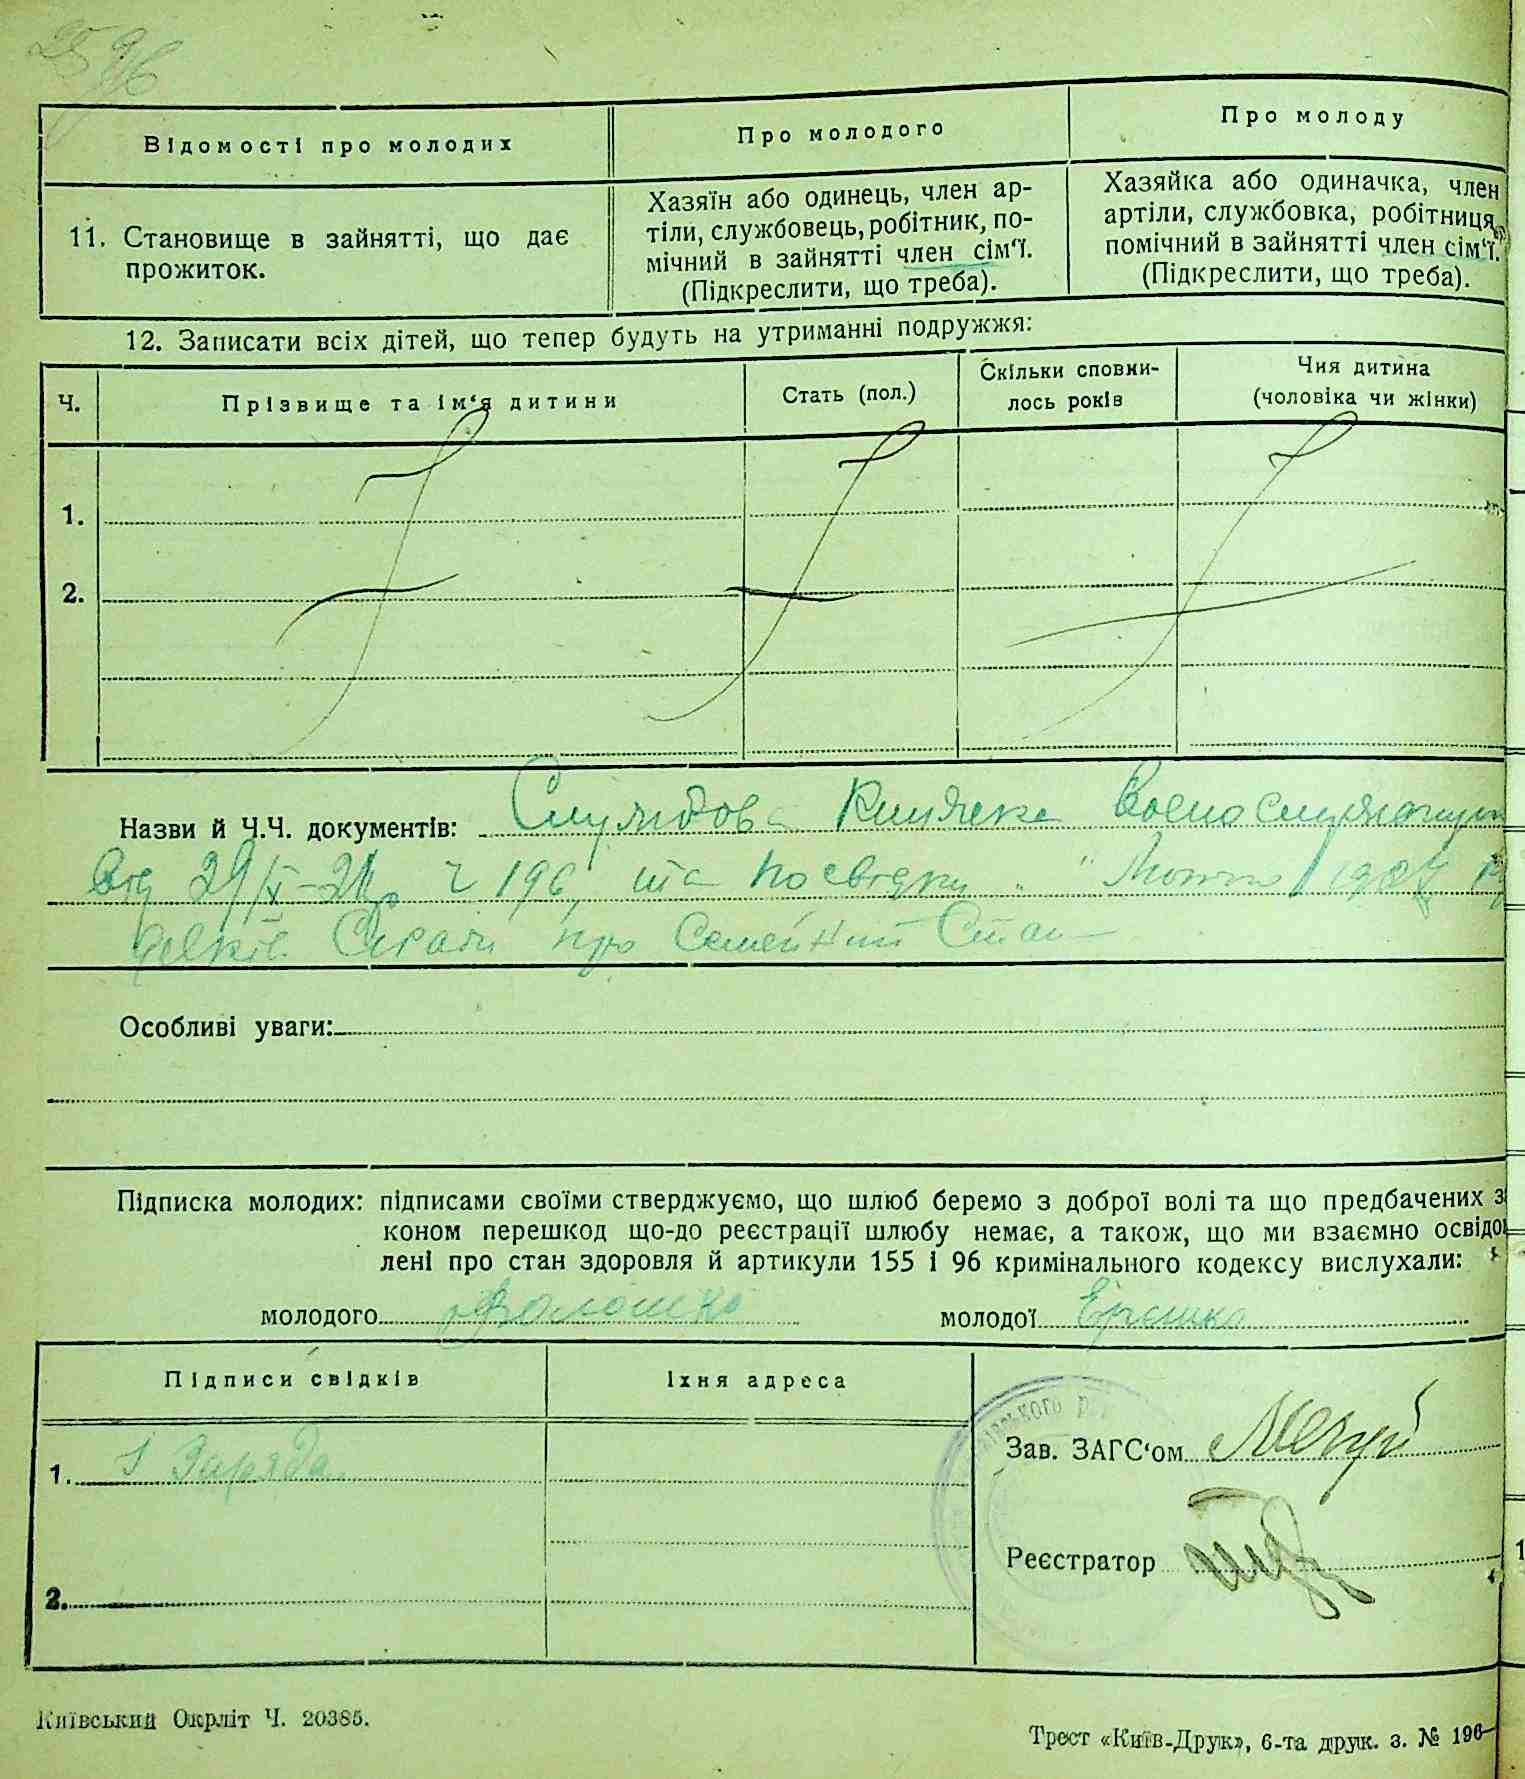 Відомості про молодих
Про молодого
Про молоду
11. Становище в зайнятті, що дає
прожиток.
Хазяїн або одинець, член ар-
тіли, службовець, робітник, по-
мічний в зайнятті член сім'ї.
(Підкреслити, що треба).
Хазяйка або одиначка, член
артіли, службовка, робітниця,
помічний в зайнятті член сім'ї.
(Підкреслити, що треба).
12. Записати всіх дітей, що тепер будуть на утриманні подружжя:
Ч.
Прізвище та ім'я дитини
Стать (пол.)
Скільки сповни-
лось років
Чия дитина
(чоловіка чи жінки)
1.
2.
Назви й Ч.Ч. документів: Службова Книжка
від 29/X ч 196, та посвідку
про Семейний Стан
Особливі уваги:
Підписка молодих: підписами своїми стверджуємо, що шлюб беремо з доброї волі та що предбачених з
коном перешкод що-до реєстрації шлюбу немає, а також, що ми взаємно освідо
лені про стан здоровля й артикули 155 і 96 кримінального кодексу вислухали:
молодого Волошко молодої
Підписи свідків
Їхня адреса
1. Заряда
2.
Зав. ЗАГС'ом
Реєстратор
Київський Окрліт Ч. 20385.
Трест «Київ-Друк», 6-та друк. з. № 196